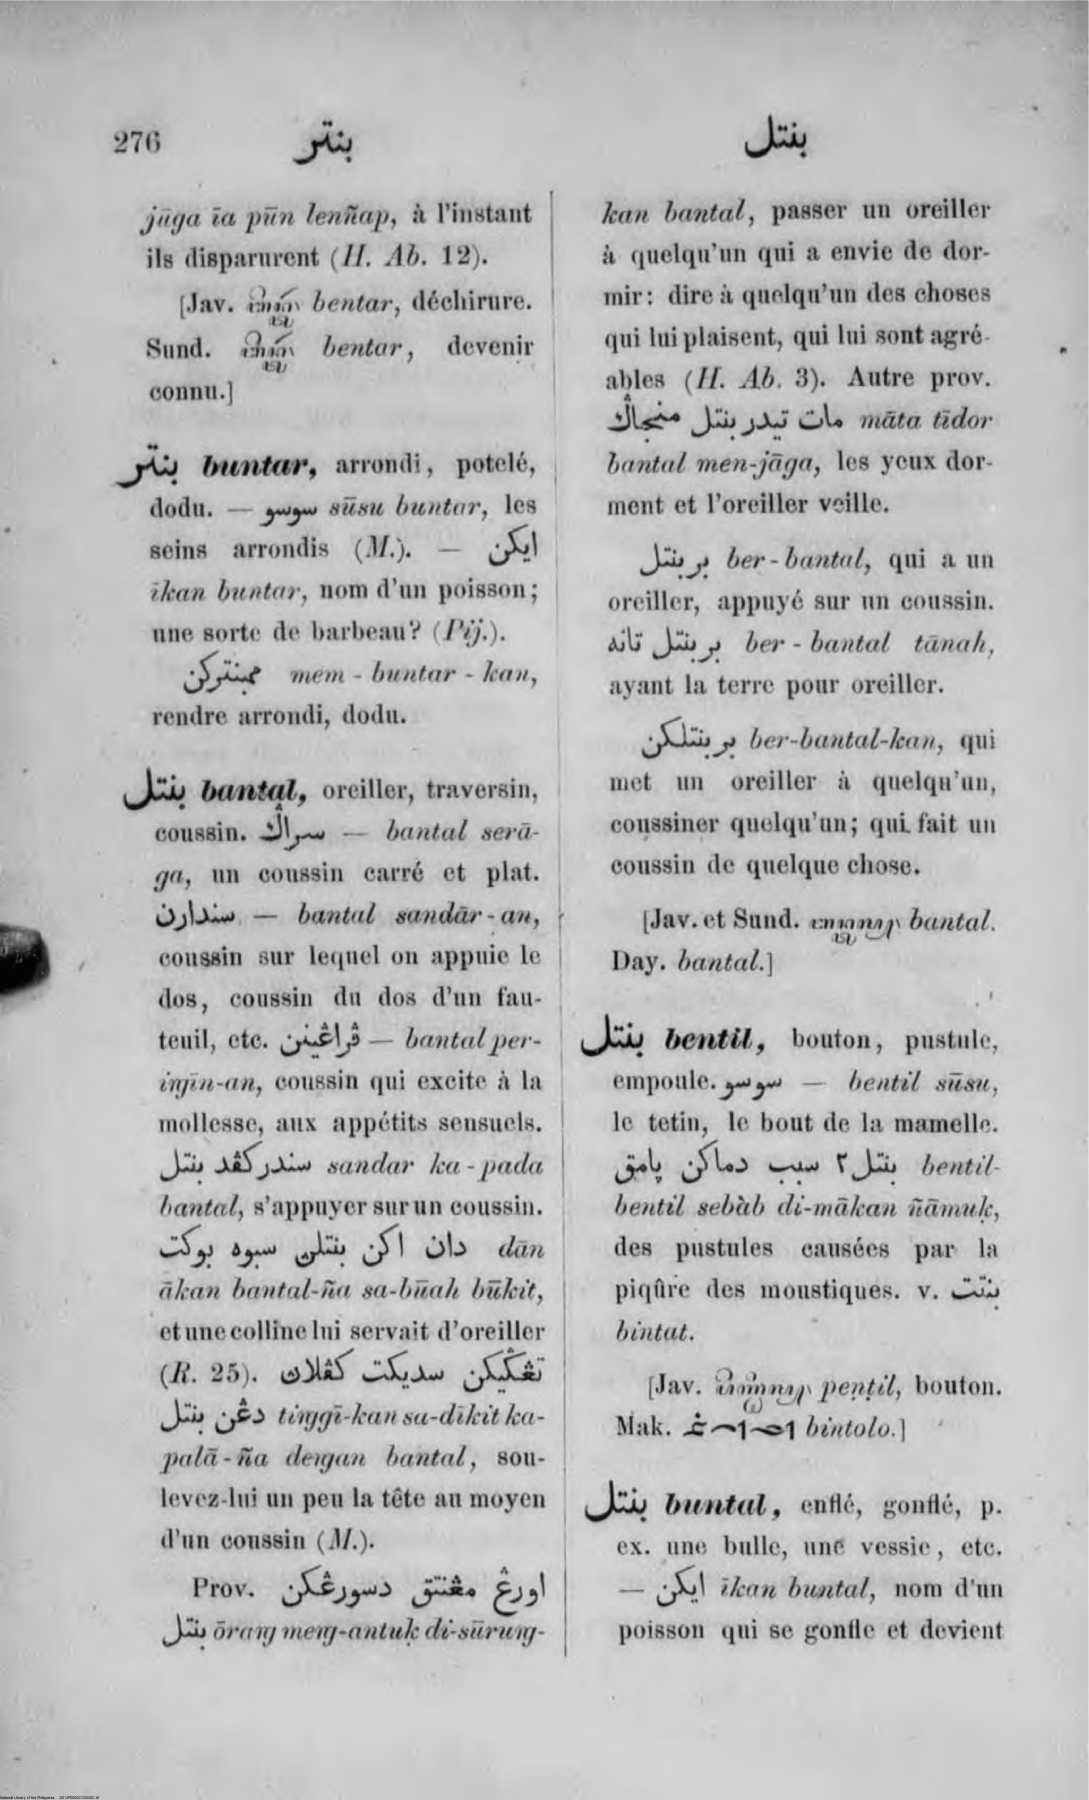 276
بنتر
بنتل
jāga īa pūn lenñap, à l'instant
ils disparurent (H. Ab. 12).
[Jav. bentar, déchirure.
Sund. bentar, devenir
connu.]
بنتر buntar, arrondi, potelé,
dodu. — سوسو sūsu buntar, les
seins arrondis (M.). — ايكن
īkan buntar, nom d'un poisson;
une sorte de barbeau? (Pij.).
ممبنتركن mem-buntar-kan,
rendre arrondi, dodu.
بنتل bantal, oreiller, traversin,
coussin. سراݢ — bantal serā-
ga, un coussin carré et plat.
سندارن — bantal sandār-an,
coussin sur lequel on appuie le
dos, coussin du dos d'un fau-
teuil, etc. ڤراڠينن — bantal per-
iṅgīn-an, coussin qui excite à la
mollesse, aux appétits sensuels.
سندر كڤد بنتل sandar ka-pada
bantal, s'appuyer sur un coussin.
دان اكن بنتلى سبوه بوكت dān
ākan bantal-ña sa-būah būkit,
et une colline lui servait d'oreiller
(R. 25). تڠݢيكن سديكت كڤلاڽ
دڠن بنتل tiṅggī-kan sa-dīkit ka-
palā-ña deṅgan bantal, sou-
levez-lui un peu la tête au moyen
d'un coussin (M.).
Prov. اورڠ مڠنتق دسورڠكن
بنتل ōraṅg meṅg-antuḳ di-sūruṅg-
kan bantal, passer un oreiller
à quelqu'un qui a envie de dor-
mir: dire à quelqu'un des choses
qui lui plaisent, qui lui sont agré-
ables (H. Ab. 3). Autre prov.
مات تيدر بنتل منجاݢ māta tīdor
bantal men-jāga, les yeux dor-
ment et l'oreiller veille.
بربنتل ber-bantal, qui a un
oreiller, appuyé sur un coussin.
بربنتل تانه ber-bantal tānah,
ayant la terre pour oreiller.
بربنتلكن ber-bantal-kan, qui
met un oreiller à quelqu'un,
coussiner quelqu'un; qui fait un
coussin de quelque chose.
[Jav. et Sund. bantal.
Day. bantal.]
بنتل bentil, bouton, pustule,
empoule. سوسو — bentil sūsu,
le tetin, le bout de la mamelle.
بنتل٢ سبب دماكن ڽامق bentil-
bentil sebàb di-mākan ñāmuḳ,
des pustules causées par la
piqûre des moustiques. v. بنتت
bintat.
[Jav. peṇṭil, bouton.
Mak. bintolo.]
بنتل buntal, enflé, gonflé, p.
ex. une bulle, une vessie, etc.
— ايكن īkan buntal, nom d'un
poisson qui se gonfle et devient